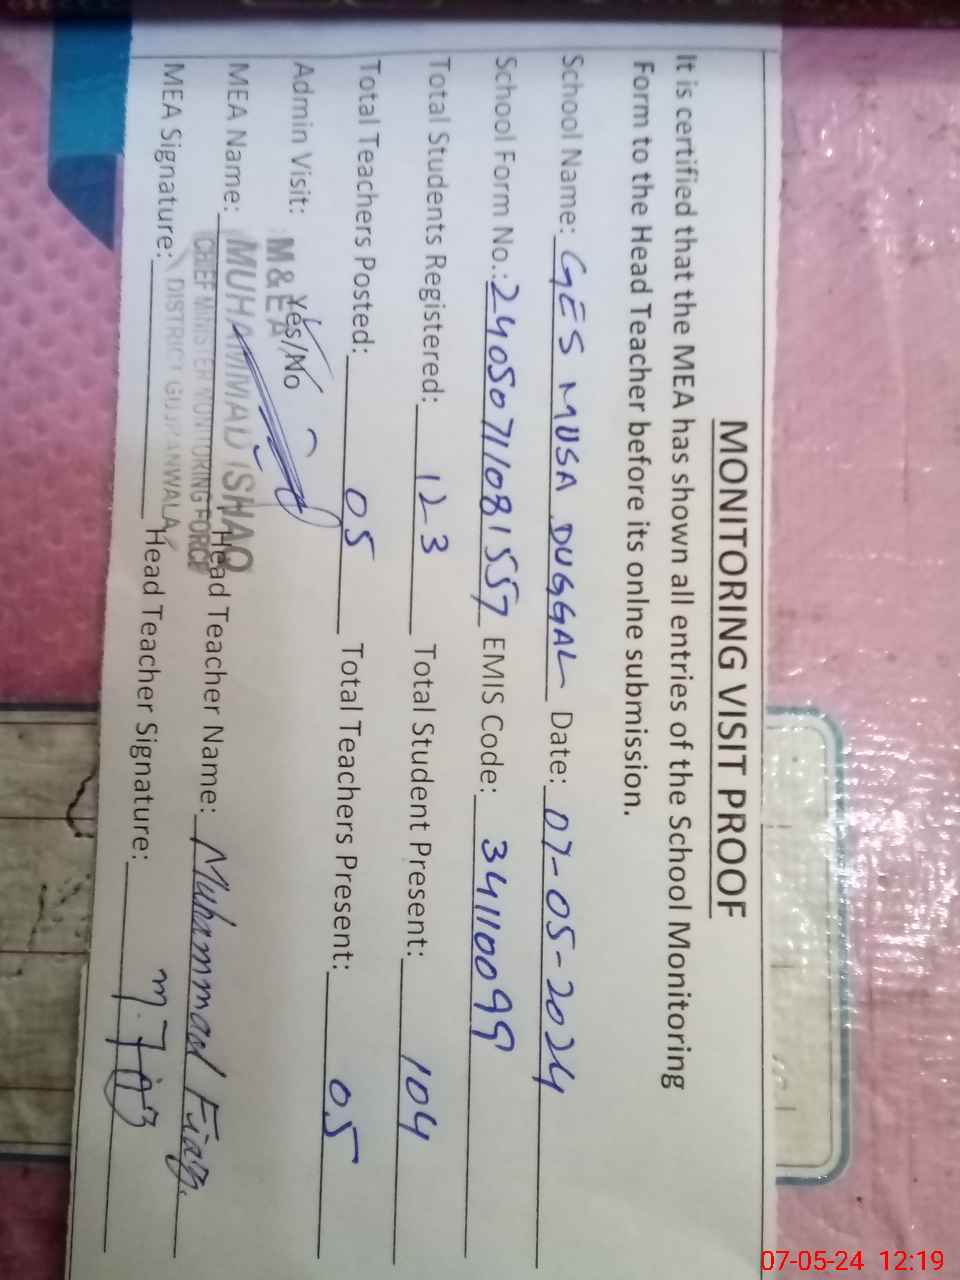 MONITORING VISIT PROOF
It is certified that the MEA has shown all entries of the School Monitoring
Form to the Head Teacher before its onlne submission.
School Name: GES MUSA DUGGAL Date: 07-05-2024
School Form No.: 2405071081557 EMIS Code: 34110099
Total Students Registered: 123 Total Student Present: 104
Total Teachers Posted: 05 Total Teachers Present: 05
Admin Visit: Yes/No
M & E A
MEA Name: MUHAMMAD ISHAQ Head Teacher Name: Muhammad Fiaz
CHIEF MINISTER MONITORING FORCE
MEA Signature: DISTRICT GUJRANWALA Head Teacher Signature:
07-05-24 12:19